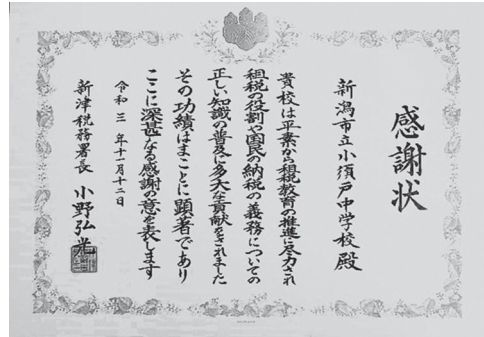 感謝状
新潟市立小須戸中学校殿
貴校は平素から租税教育の推進に尽力され
租税の役割や国民の納税の義務についての
正しい知識の普及に多大な貢献をされました
その功績はまことに顕著であり
ここに深甚なる感謝の意を表します
令和三年十一月十二日
新津税務署長 小野弘光